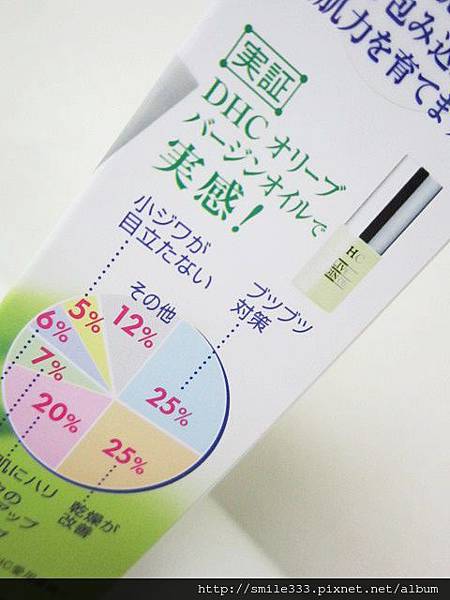 包み込
肌力を育てま
実証
DHC オリーブ
バージンオイルで
実感！
小ジワが
目立たない
その他
ブツブツ
対策
5%
12%
6%
7%
25%
20%
25%
肌にハリ
乾燥が
改善
アップ
http://smile333.pixnet.net/album